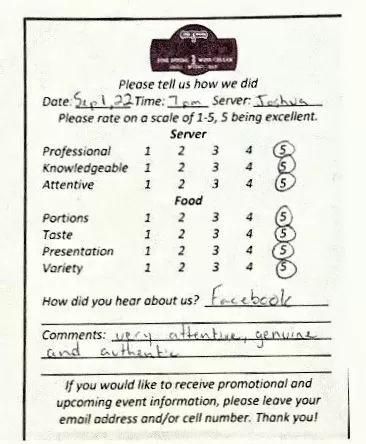 Please tell us how we did
Date: Sept 1, 22 Time: 7pm Server: Joshua
Please rate on a scale of 1-5, 5 being excellent.
Server
Professional 1 2 3 4 5
Knowledgeable 1 2 3 4 5
Attentive 1 2 3 4 5
Food
Portions 1 2 3 4 5
Taste 1 2 3 4 5
Presentation 1 2 3 4 5
Variety 1 2 3 4 5
How did you hear about us? Facebook
Comments: very attentive, genuine
and authentic
If you would like to receive promotional and
upcoming event information, please leave your
email address and/or cell number. Thank you!